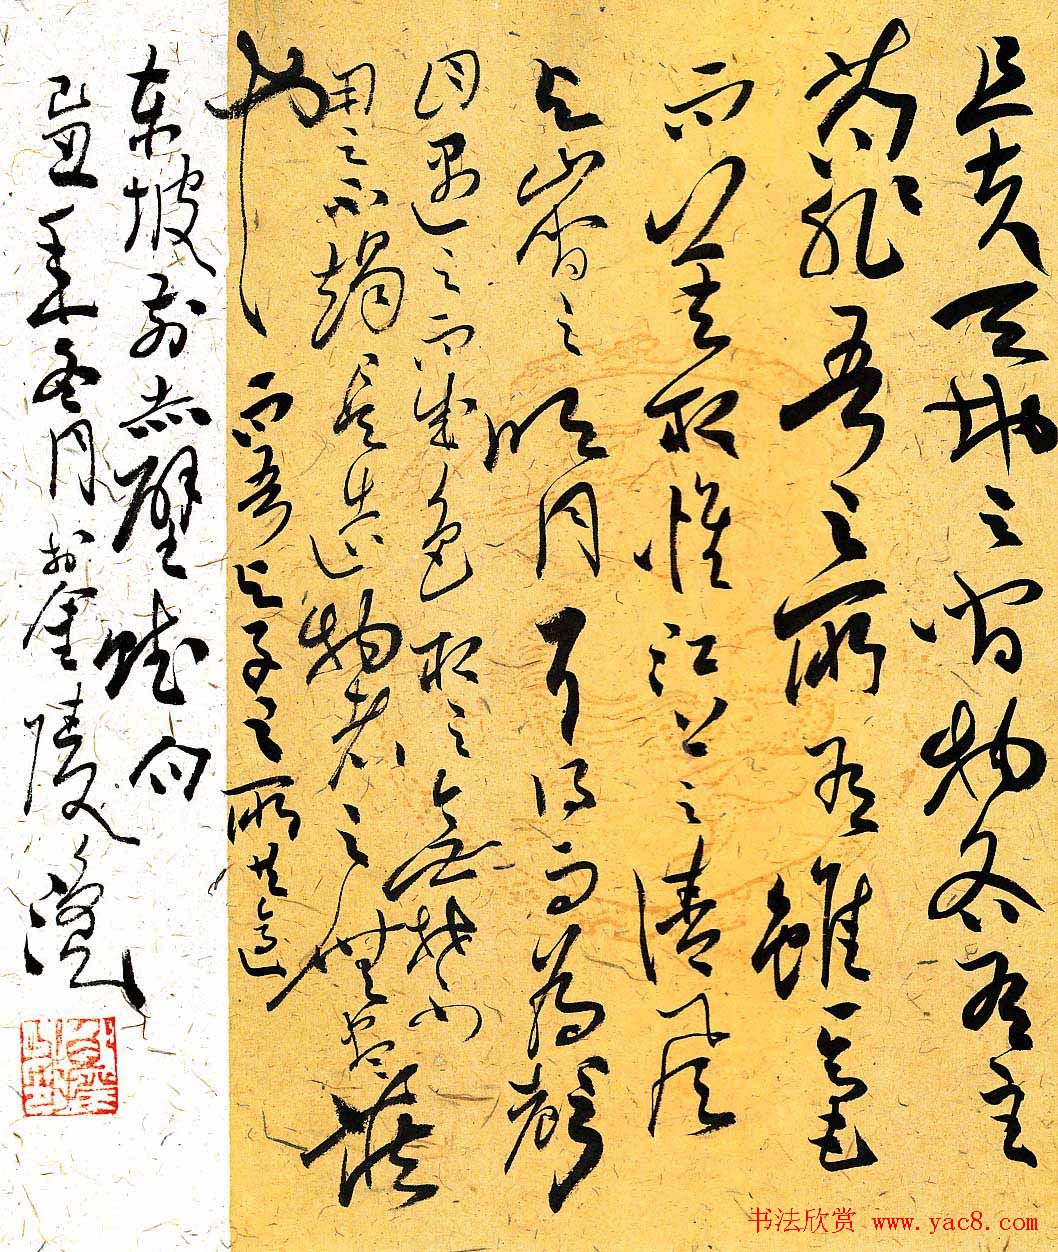 且夫天地之間物各有主
苟非吾之所有雖一毫
而莫取惟江上之清風
与山間之明月耳得而為聲
目遇之而成色取之無禁
用之不竭是造物者之無盡藏
也 而吾与子之所共適
東坡前赤壁賦句
己丑年冬月於金陵
书法欣赏 www.yac8.com